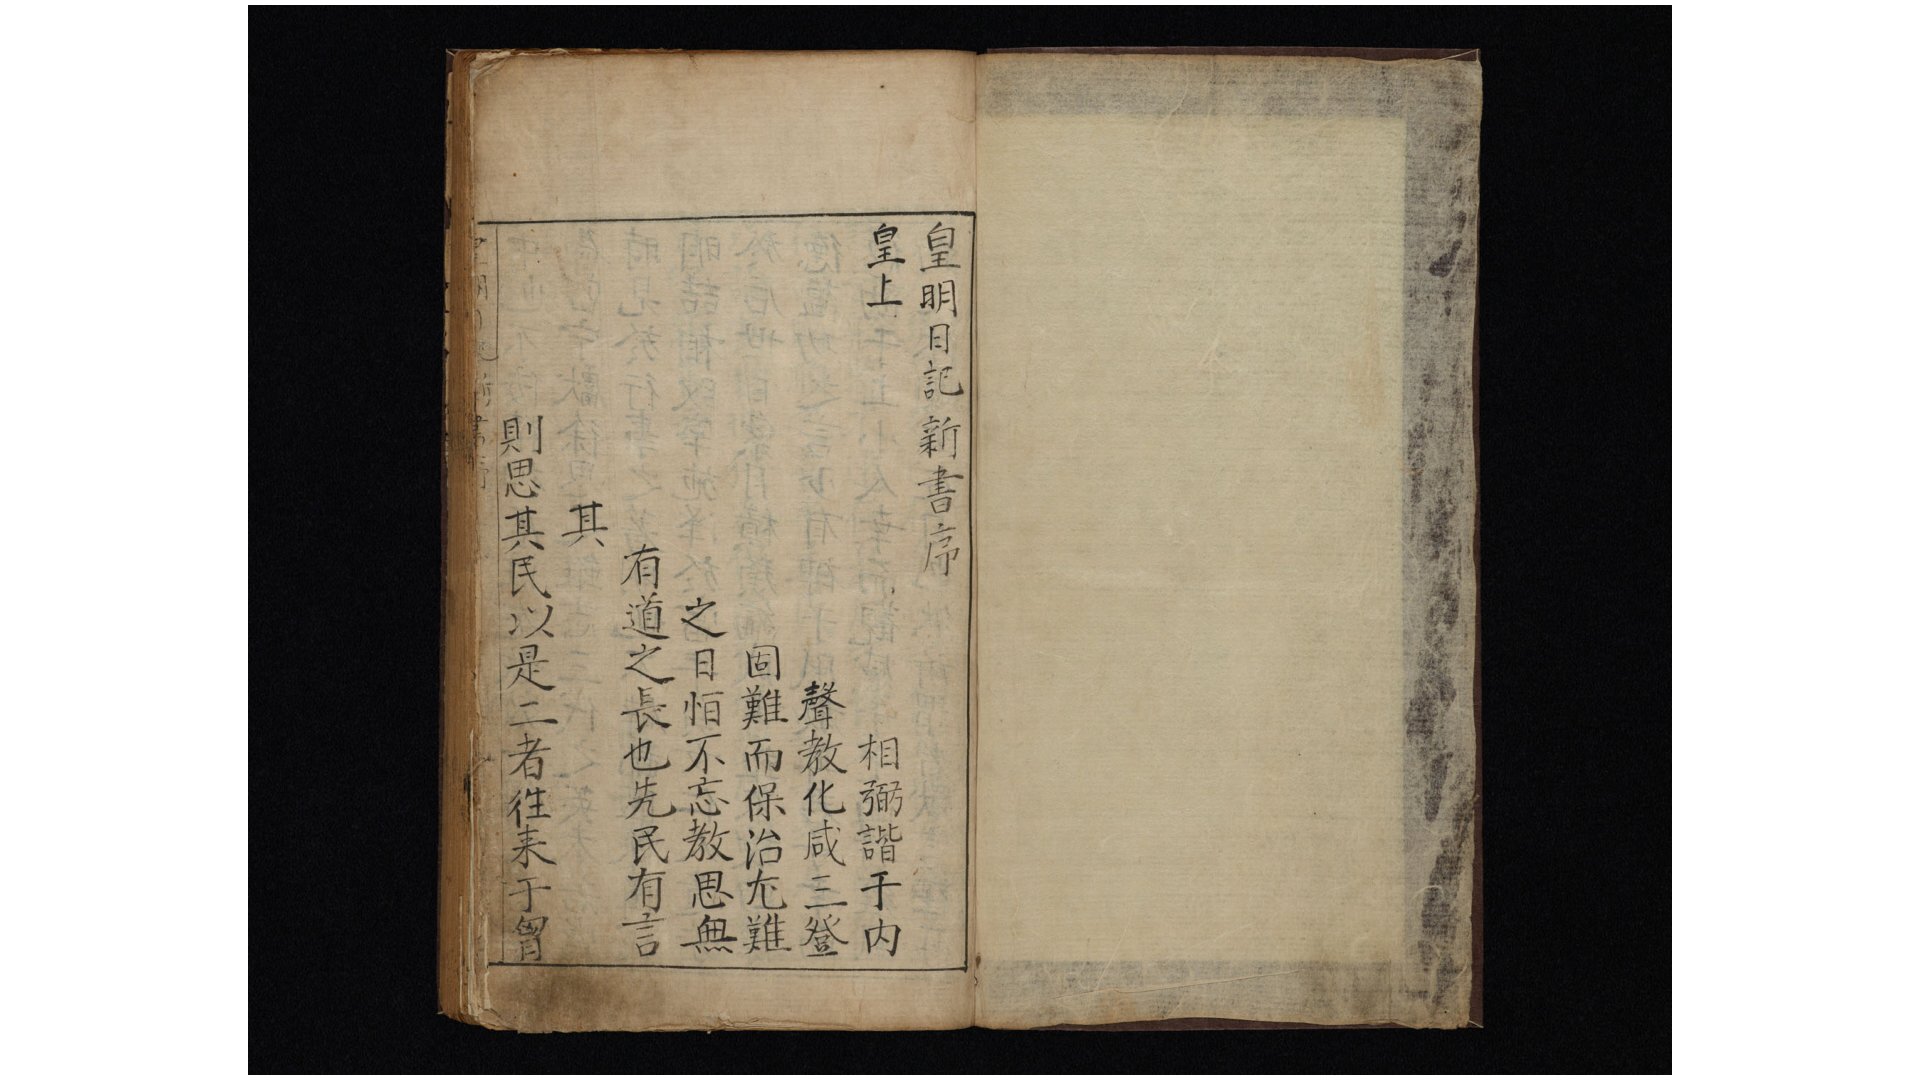 皇明日記新書序
皇上
相弼諧于内
聲教化咸三登
固難而保治尤難
之日怕不忘教思無
有道之長也先民有言
其
則思其民以是二者徃来于胷